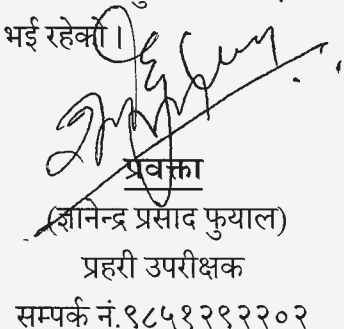 भई रहेको।
प्रवक्ता
(ज्ञानेन्द्र प्रसाद फुयाल)
प्रहरी उपरीक्षक
सम्पर्क नं.९८५१२९२२०२